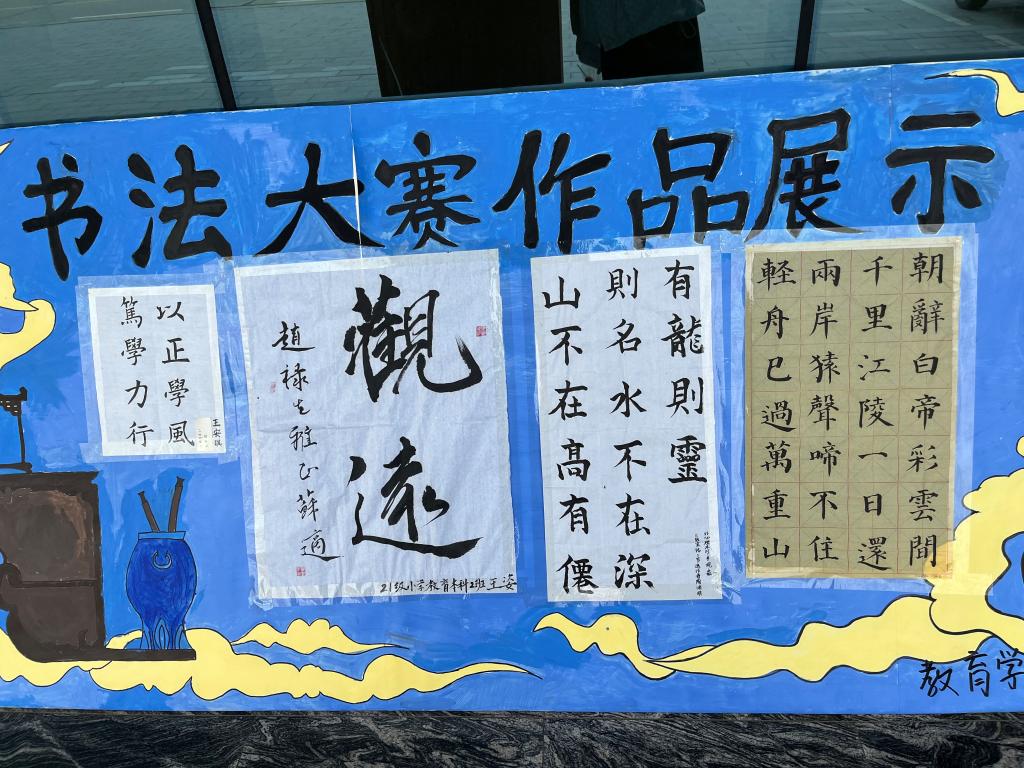 书法大赛作品展示
以正學風
篤學力行
王安祺
觀遠
趙祿先雅正蘇適
21级小学教育本科2班王姿
山不在高有僊
則名水不在深
有龍則靈
朝辭白帝彩雲間
千里江陵一日還
兩岸猿聲啼不住
軽舟已過萬重山
教育学